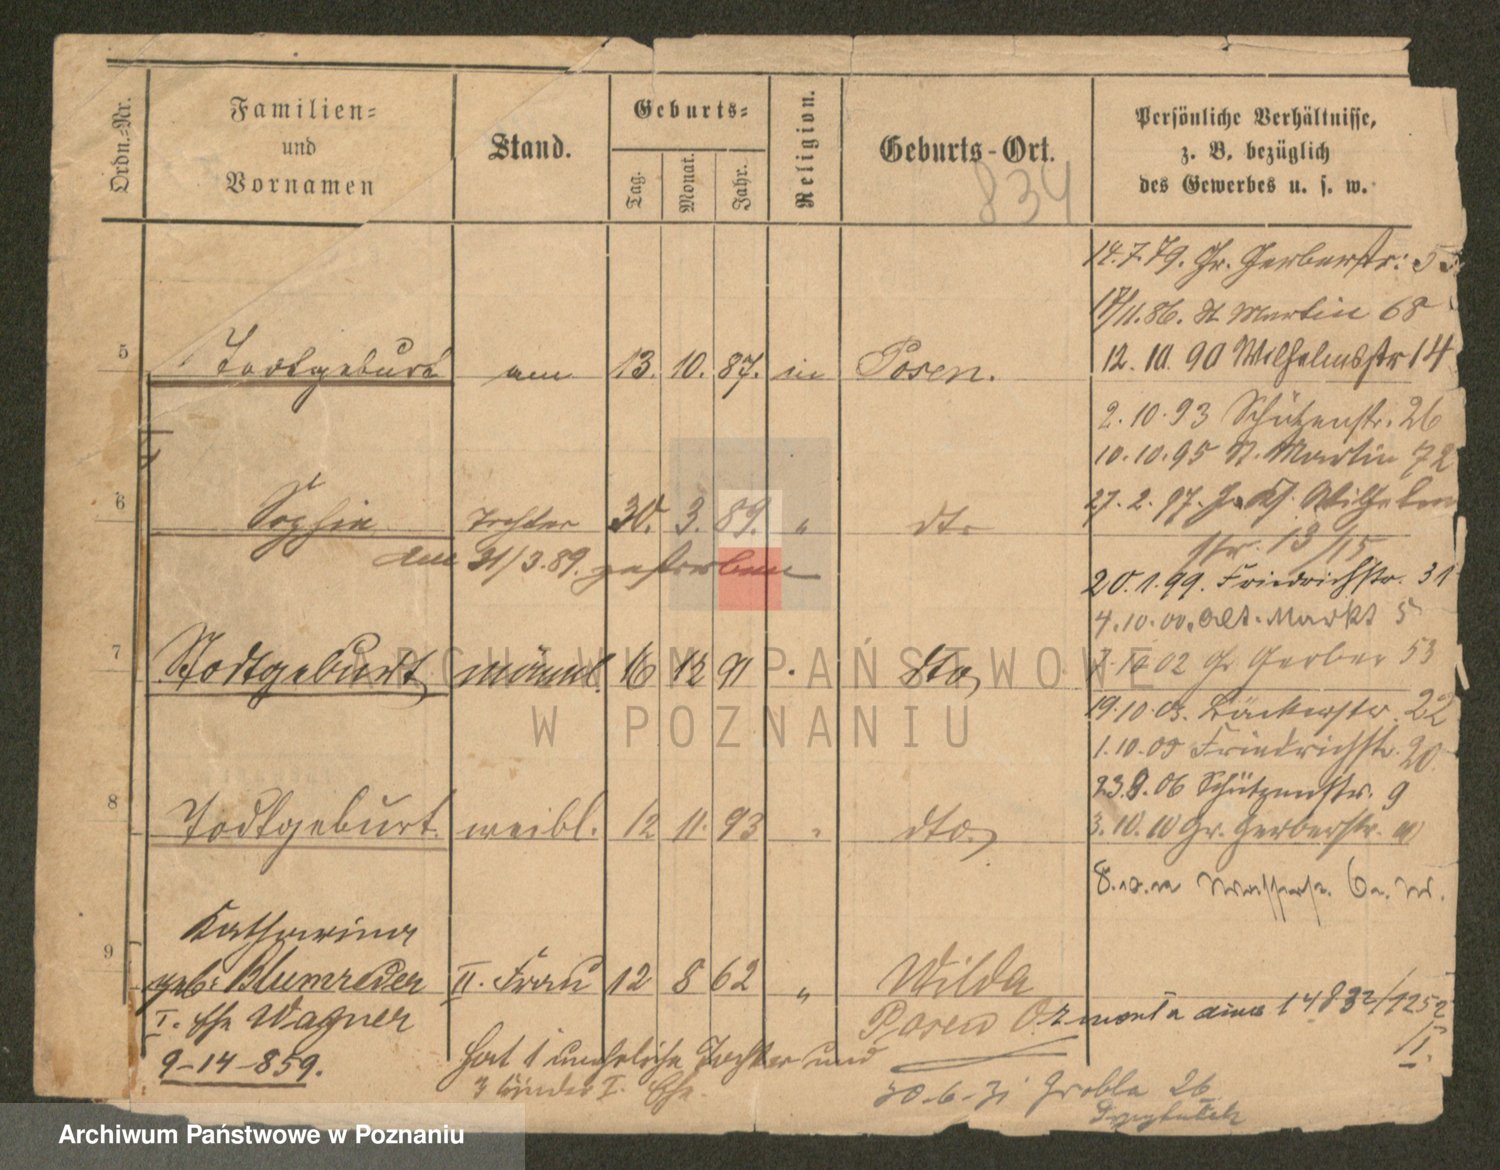 Ordn.-Nr.
Familien-
und
Vornamen
Stand.
Geburts-
Tag.
Monat.
Jahr.
Religion.
Geburts-Ort.
834
Persönliche Verhältnisse,
z. B. bezüglich
des Gewerbes u. s. w.
14.7.79. Gr. Gerberstr. 53
17/11.86. St Martin 68
5 Todtgeburt am 13. 10. 87. in Posen.
12. 10. 90 Wilhelmsstr 14
2. 10. 93 Schützenstr. 26
10.10.95 St. Martin 72
27. 2. 97. Wilhelm
str. 13/15
6 Sophie Tochter 30. 3. 89. " dto
am 31/3.89. gestorben
20.1.99. Friedrichstr. 31
4.10.00. Alt. Markt 5
7 Todtgeburt männl. 16 12 91 . dto
10 02 Gr Gerber 53
19.10.03. Bäckerstr. 22
1.10.05 Friedrichstr. 20
23.8.06 Schützenstr. 9
8 Todtgeburt. weibl. 12 11. 93 . dto.
3.10.10 Gr. Gerberstr.
8.
9 Katharina
geb: Blumreder II. Frau 12 8 62 " Wilda
I. Ehe Wagner
Posen
9-14-859.
hat 1 uneheliche Tochter und
3 Kinder I. Ehe.
30-6-31 Grobla 26
ARCHIWUM PAŃSTWOWE
W POZNANIU
Archiwum Państwowe w Poznaniu